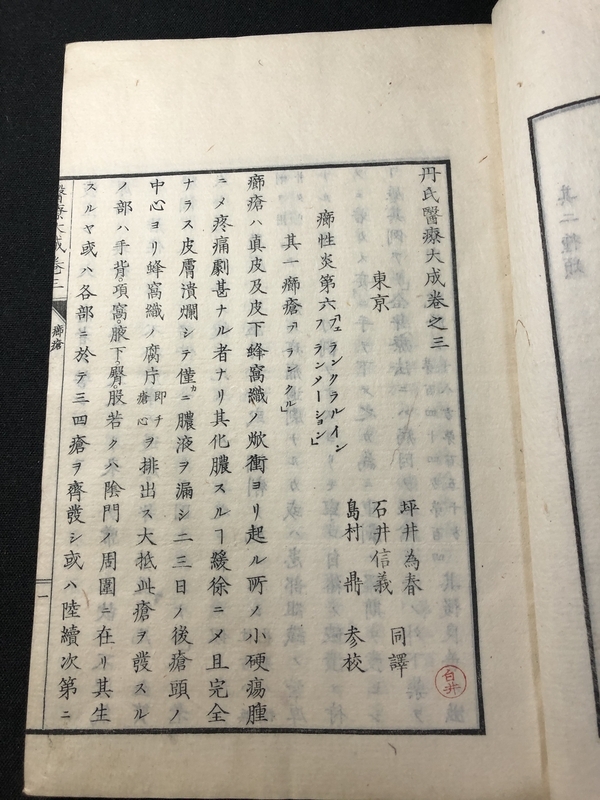 丹氏醫療大成卷之三
坪井為春
東京 石井信義 同譯
島村鼎 參校
癤性炎第六「フェランクラルイン
フランメーション」
其一癤瘡「フランクル」
癤瘡ハ真皮及皮下蜂窩織ノ焮衝ヨリ起ル所ノ小硬瘍腫
ニメ疼痛劇甚ナル者ナリ其化膿スルヿ緩徐ニメ且完全
ナラス皮膚潰爛シテ僅カニ膿液ヲ漏シ二三日ノ後瘡頭ノ
中心ヨリ蜂窩織ノ腐片即チ瘡心ヲ排出ス大抵此瘡ヲ發スル
ノ部ハ手背。項窩。腋下。臀。股若クハ陰門ノ周圍ニ在リ其生
スルヤ或ハ各部ニ於テ三四瘡ヲ齊發シ或ハ陸續次第ニ
醫療大成卷三
癤瘡
一
白井
其二種類